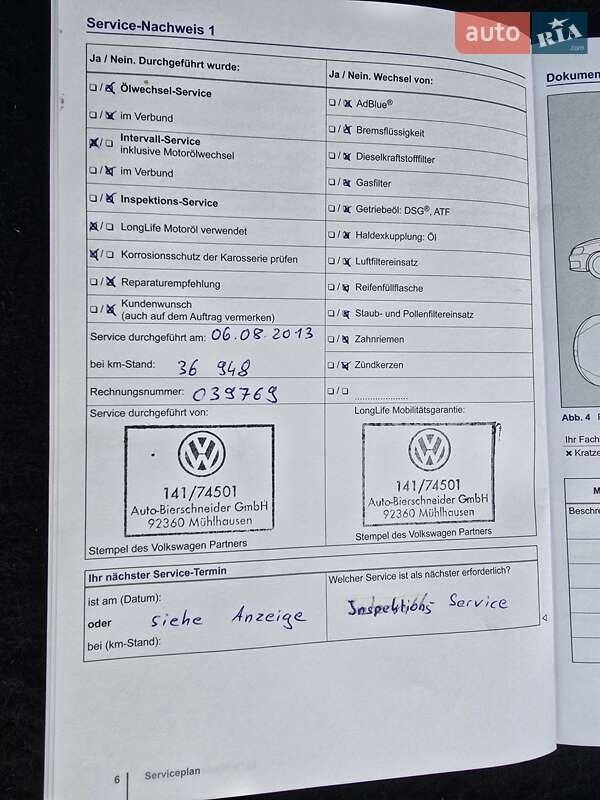 Service-Nachweis 1
auto RIA .com
Ja / Nein. Durchgeführt wurde:
Ölwechsel-Service
im Verbund
Intervall-Service
inklusive Motorölwechsel
im Verbund
Inspektions-Service
LongLife Motoröl verwendet
Korrosionsschutz der Karosserie prüfen
Reparaturempfehlung
Kundenwunsch
(auch auf dem Auftrag vermerken)
Service durchgeführt am: 06.08.2013
bei km-Stand: 36 948
Rechnungsnummer: 039769
Service durchgeführt von:
141/74501
Auto-Bierschneider GmbH
92360 Mühlhausen
Stempel des Volkswagen Partners
Ja / Nein. Wechsel von:
AdBlue®
Bremsflüssigkeit
Dieselkraftstofffilter
Gasfilter
Getriebeöl: DSG®, ATF
Haldexkupplung: Öl
Luftfiltereinsatz
Reifenfüllflasche
Staub- und Pollenfiltereinsatz
Zahnriemen
Zündkerzen
LongLife Mobilitätsgarantie:
141/74501
Auto-Bierschneider GmbH
92360 Mühlhausen
Stempel des Volkswagen Partners
Ihr nächster Service-Termin
ist am (Datum):
oder siehe Anzeige
bei (km-Stand):
Welcher Service ist als nächster erforderlich?
Inspektions Service
6 Serviceplan
Dokumen
Abb. 4
Ihr Fach
× Kratze
M
Beschre